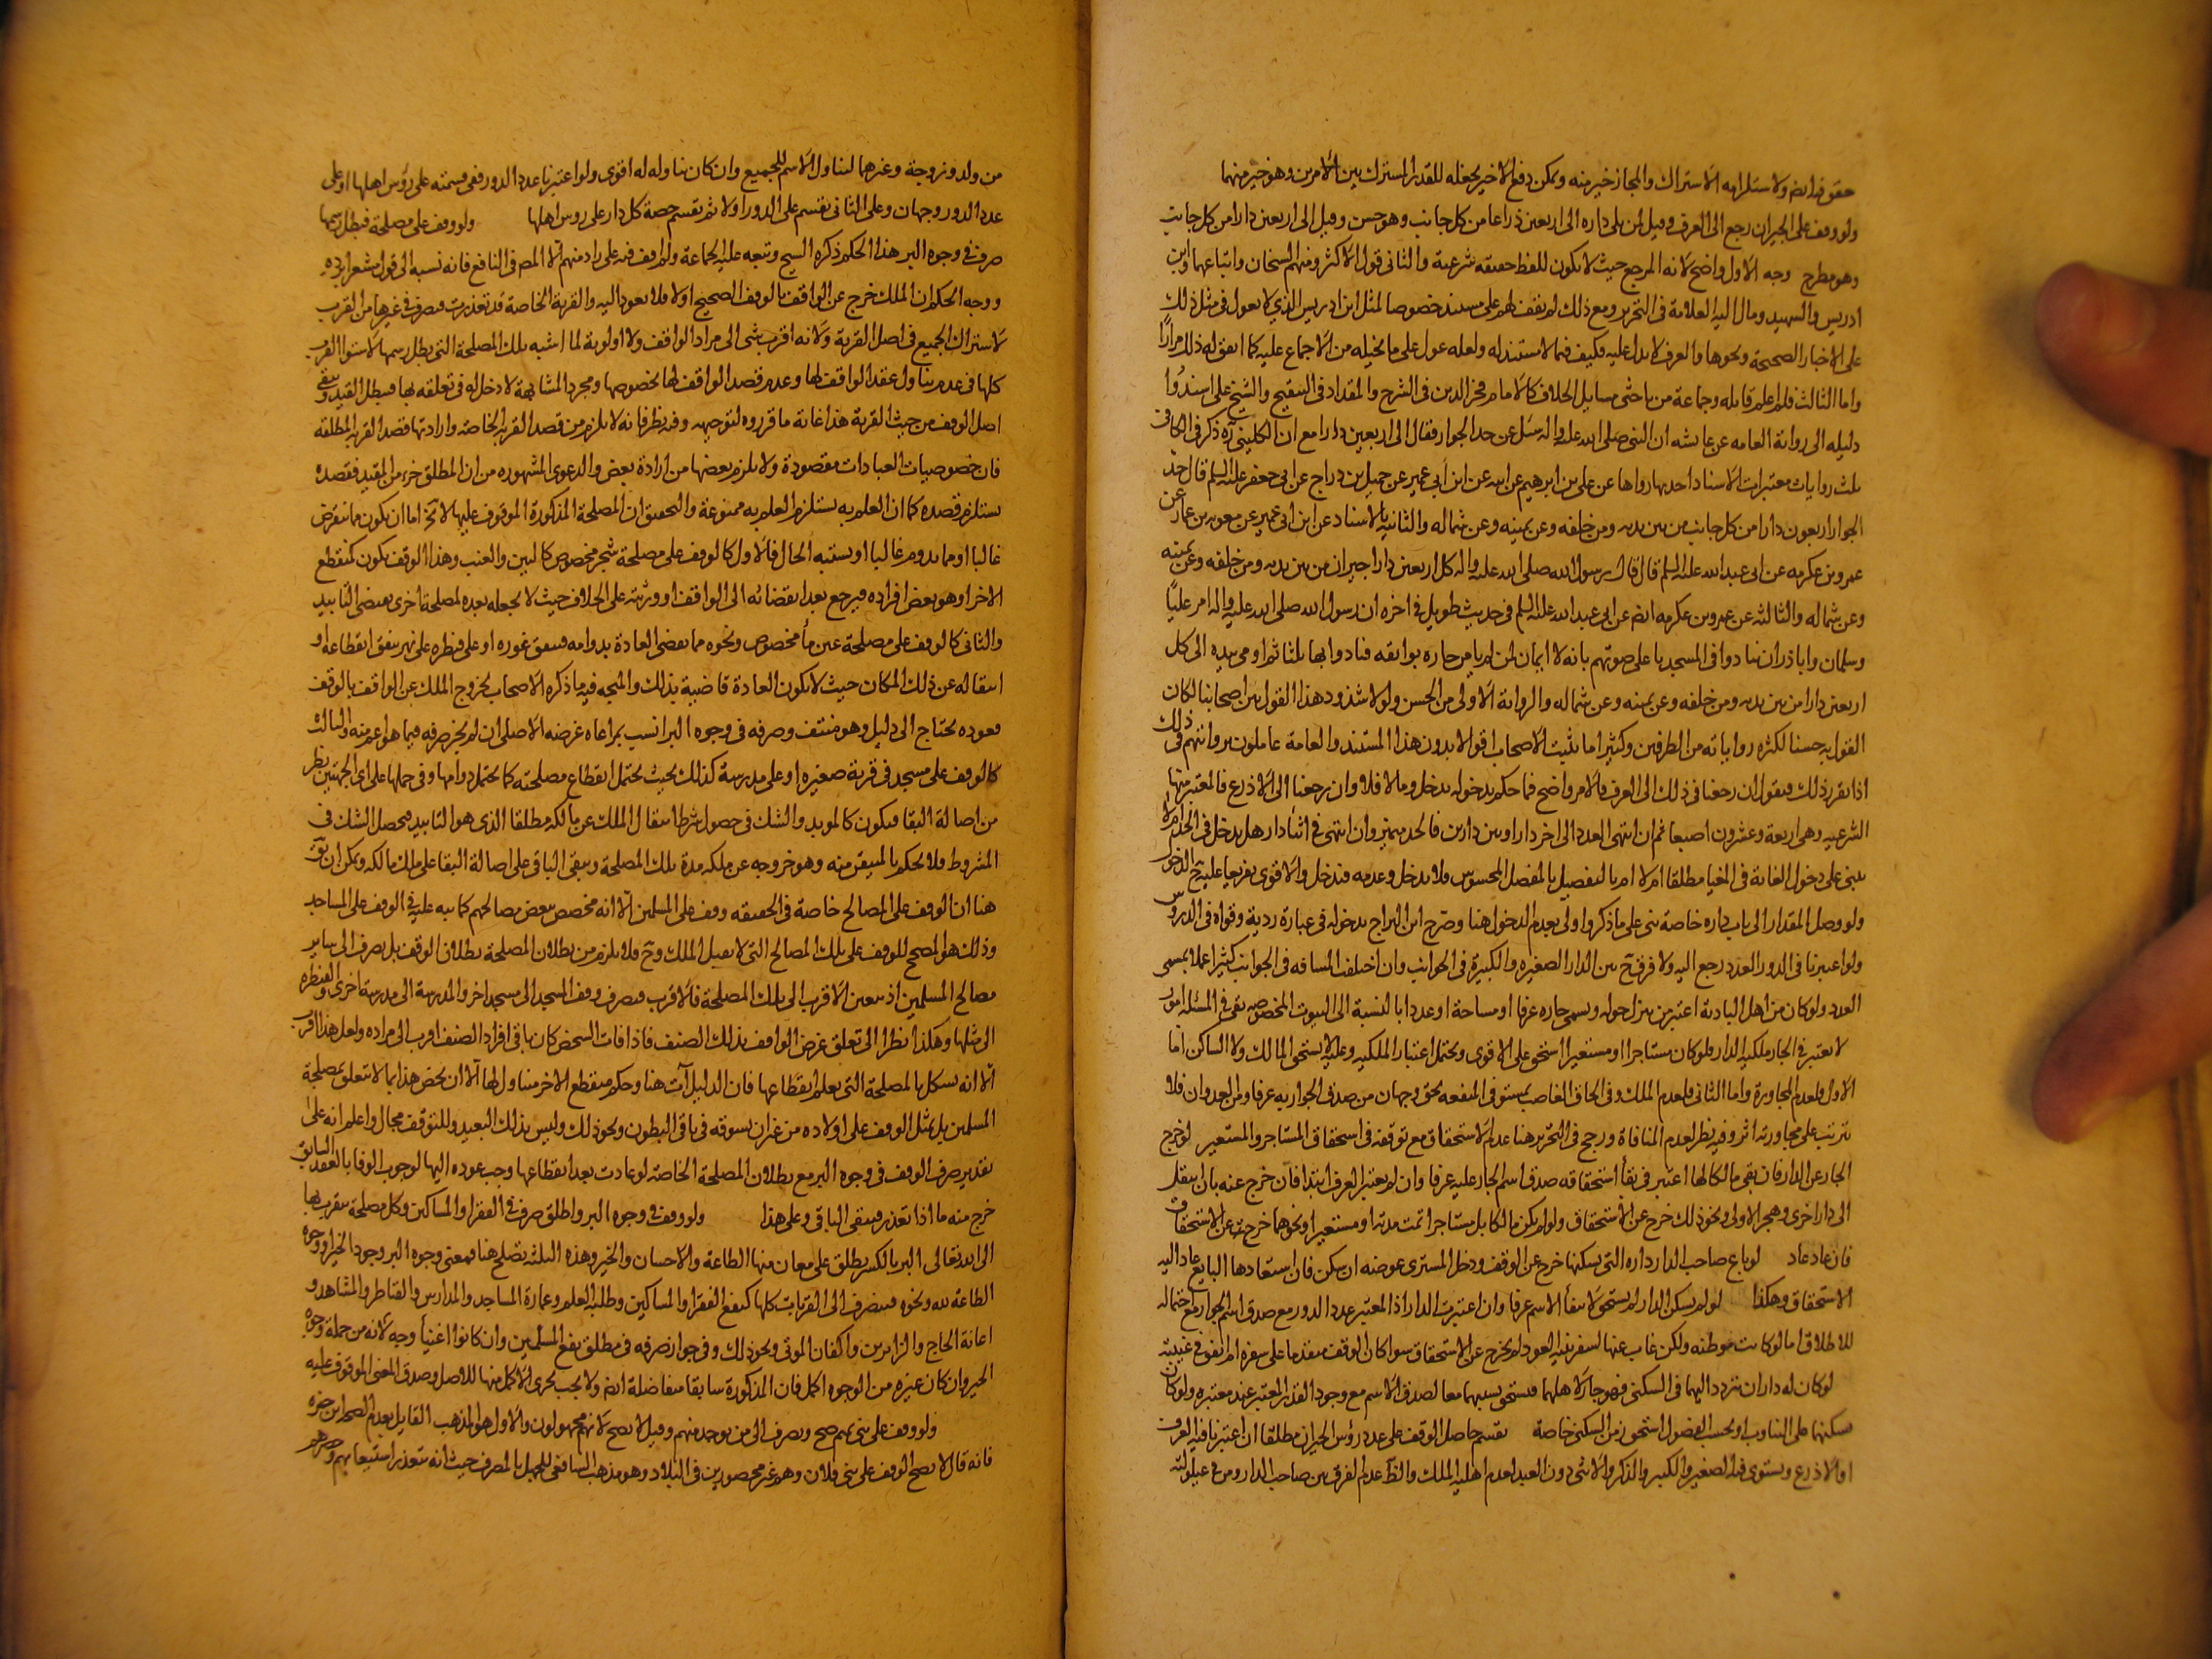 حقق فيه ايضا ولاستلزامه الاشتراك والمجاز خير منه ويمكن دفع الاخير بجعله للقدر المشترك بين الامرين وهو خير منهما
ولو وقف على الجيران رجع الى العرف وقيل لمن يلى داره الى اربعين ذراعا من كل جانب وهو حسن وقيل الى اربعين دارا من كل جانب
وهو مطرح وجه الاول واضح لانه المرجع حيث لا يكون للفظ حقيقة شرعية والثانى قول الاكثر ومنهم الشيخان واتباعهما وابن
ادريس والشهيد ومال اليه العلامة فى التحرير ومع ذلك لم نقف لهم على مستند خصوصا لمثل ابن ادريس الذي لا يعول فى مثل ذلك
على الاخبار الصحيحة ونحوها والعرف لا يدل عليه فكيف فيما لا مستند له ولعله عول على ما تخيله من الاجماع عليه كما اتفق له ذلك مرارا
واما الثالث فلم اعلم قايله وجماعة من باحثى مسايل الخلاف كالامام فخر الدين فى الشرح والمقداد فى التنقيح والشيخ على اسندوا
دليله الى رواية العامه عن عايشه ان النبى صلى الله عليه واله سئل عن حد الجوار فقال الى اربعين دارا مع ان الكلينى ره ذكر فى الكافى
ثلث روايات معتبرات الاسناد احديها رواها عن على بن ابرهيم عن ابيه عن ابن ابى عمير عن جميل بن دراج عن ابى جعفر عليه السلم قال حد
الجوار اربعون دارا من كل جانب من بين يديه ومن خلفه وعن يمينه وعن شماله والثانيه بالاسناد عن ابن ابى عمير عن معويه بن عمار عن
عمرو بن عكرمه عن ابى عبد الله عليه السلم قال قال رسول الله صلى الله عليه واله كل اربعين دارا جيران من بين يديه ومن خلفه وعن يمينه
وعن شماله والثالثه عن عمرو بن عكرمه ايضا عن ابى عبد الله عليه السلم فى حديث طويل فى اخره ان رسول الله صلى الله عليه واله امر عليا
وسلمان واباذر ان ينادوا فى المسجد باعلى صوتهم بانه لا ايمان لمن لم يامن جاره بوايقه فنادوا بها ثلثا ثم اومى بيده الى كل
اربعين دارا من بين يديه ومن خلفه وعن يمينه وعن شماله والرواية الاولى من الحسن ولولا شذوذ هذا القول بين اصحابنا لكان
القول به حسنا لكثره رواياته من الطرفين وكثيرا ما يثبت الاصحاب اقوالا بدون هذا المستند والعامة عاملون برواتهم فى ذلك
اذا تقرر ذلك فنقول ان رجعنا فى ذلك الى العرف فالامر واضح فما حكم بدخوله يدخل وما لا فلا وان رجعنا الى الاذرع فالمعتبر منها
الشرعيه وهى اربعة وعشرون اصبعا ثم ان انتهى العدد الى اخر دار او بين دارين فالحد متميز وان انتهى فى اثناء دار هل يدخل فى الحد ام لا
يبنى على دخول الغاية فى المغيا مطلقا ام لا ام بالتفصيل بالمفصل المحسوس فلا يدخل وعدمه فتدخل والاقوى تفريعا عليه الدخول
ولو وصل المقدار الى باب داره خاصة بنى على ما ذكر واولى بعدم الدخول هنا وصرح ابن البراج بدخوله فى عبارة رديه وقواه فى الدروس
ولو اعتبرنا فى الدور العدد رجع اليه ولا فرق ح بين الدار الصغيره والكبيرة فى الجوانب وان اختلفت المسافه فى الجوانب كثيرا عملا بمسمى
العدد ولو كان من اهل الباديه اعتبر من ينزل حوله ويسمى جاره عرفا او مساحة او عددا بالنسبة الى البيوت المخصوصه بقى فى المسئله امور
لا يعتبر فى الجار ملكيه الدار فلو كان مستاجرا او مستعيرا استحق على الاقوى ويحتمل اعتبار الملكيه وعليه لا يستحق المالك ولا الساكن اما
الاول فلعدم المجاورة واما الثانى فلعدم الملك وفى الحاق الغاصب بمستوفى المنفعه بحق وجهان من صدق الجوار به عرفا ومن العدوان فلا
يترتب على مجاورته اثر وفيه نظر لعدم المنافاة ورجح فى التحرير هنا عدم الاستحقاق مع توقفه فى استحقاق المستاجر والمستعير لو خرج
الجار عن الدار فان بقى مالكا لها اعتبر فى بقاء استحقاقه صدق اسم الجار عليه عرفا وان لم يعتبر العرف ابتدا فان خرج عنه بان انتقل
الى دار اخرى وهجر الاولى ونحو ذلك خرج عن الاستحقاق ولو لم يكن مالكا بل مستاجرا تمت مدته او مستعيرا ونحوهما خرج عن الاستحقاق
فان عاد عاد لو باع صاحب الدار داره التى يسكنها خرج عن الوقف ودخل المشترى عوضه ان سكن فان استعادها البايع عاد اليه
الاستحقاق وهكذا لو لم يسكن الدار لم يستحق لانتفاء الاسم عرفا وان اعتبرت الدار اذ المعتبر عدد الدور مع صدق اسم الجوار مع احتماله
للاطلاق اما لو كانت موطنه ولكن غاب عنها لسفر بنيه العود لم يخرج عن الاستحقاق سوا كان الوقف متقدما على سفره ام اتفق فى غيبته
لو كان له داران يتردد اليهما فى السكنى فهو جار لاهلهما فيستحق بسببهما معا لصدق الاسم مع وجود القدر المعتبر عند معتبره ولو كان
يسكنهما على التناوب او بحسب الفصول استحق زمن السكنى خاصة يقسم حاصل الوقف على عدد رؤس الجيران مطلقا ان اعتبرنا فيه العرف
او الاذرع ويستوى فيه الصغير والكبير والذكر والانثى دون العبد لعدم اهليه الملك والظ عدم الفرق بين صاحب الدار ومن فى عيلولته
من ولد وزوجة وغيرهما لتناول الاسم للجميع وان كان تناوله له اقوى ولو اعتبرنا عدد الدور ففى قسمته على رؤس اهلها او على
عدد الدور وجهان وعلى الثانى يقسم على الدور اولا ثم تقسم حصة كل دار على روس اهلها ولو وقف على مصلحة فبطل رسمها
صرف فى وجوه البر هذا الحكم ذكره الشيخ وتبعه عليه الجماعة ولم اقف فيه على راد منهم الا المص فى النافع فانه نسبه الى قول مشعرا برده
ووجه الحكم ان الملك خرج عن الواقف بالوقف الصحيح اولا فلا يعود اليه والقربة الخاصة قد تعذرت فيصرف فى غيرها من القرب
لاشتراك الجميع فى اصل القربة ولانه اقرب شى الى مراد الواقف ولا اولوية لما اشبه تلك المصلحة التى بطل رسمها لاستوا القرب
كلها فى عدم تناول عقد الواقف لها وعدم قصد الواقف لها بخصوصها ومجرد المشابهة لا دخل له فى تعلقه بها فيبطل القيد ويبقى
اصل الوقف من حيث القربة هذا غاية ما قرروه لتوجيهه وفيه نظر فانه لا يلزم من قصد القربه الخاصه وارادتها قصد القربه المطلقه
فان خصوصيات العبادات مقصودة ولا يلزم بعضها من ارادة بعض والدعوى المشهوره من ان المطلق جزء من المقيد فقصده
يستلزم قصده كما ان العلم به يستلزم العلم به ممنوعة والتحقيق ان المصلحة المذكورة الموقوف عليها لا تخ اما ان يكون مما ينقرض
غالبا او مما يدوم غالبا او يشتبه الحال فالاول كالوقف على مصلحة شجر مخصوص كالتين والعنب وهذا الوقف يكون كمنقطع
الاخر او هو بعض افراده فيرجع بعد انقضائه الى الواقف او ورثته على الخلاف حيث لا يجعله بعده لمصلحة اخرى يقتضى التابيد
والثانى كالوقف على مصلحة عين ماء مخصوص ونحوه مما تقضى العادة بدوامه فيتفق غوره او على قنطره على نهر يتفق انقطاعه او
انتقاله عن ذلك المكان حيث لا يكون العادة قاضية بذلك والمتجه فيه ما ذكره الاصحاب لخروج الملك عن الواقف بالوقف
فعوده يحتاج الى دليل وهو منتف وصرفه فى وجوه البر انسب بمراعاه غرضه الاصلى ان لم يجز صرفه فيما هو اعم منه والثالث
كالوقف على مسجد فى قرية صغيره او على مدرسة كذلك بحيث يحتمل انقطاع مصلحته كما يحتمل دوامها وفى حملها على اى الجهتين نظر
من اصالة البقا فيكون كالموبد والشك فى حصول شرط انتقال الملك عن مالكه مطلقا الذى هو التابيد فيحصل الشك فى
المشروط فلا يحكم بالمتيقن منه وهو خروجه عن ملكه مدة تلك المصلحة ويبقى الباقى على اصالة البقا على ملك مالكه ويمكن ان يق
هنا ان الوقف على المصالح خاصة فى الحقيقه وقف على المسلمين الا انه مخصص ببعض مصالحهم كما نبه عليه فى الوقف على المساجد
وذلك هو المصحح للوقف على تلك المصالح التى لا تقبل الملك وح فلا يلزم من بطلان المصلحة بطلان الوقف بل يصرف الى ساير
مصالح المسلمين او يتعين الاقرب الى تلك المصلحة فالاقرب فيصرف وقف المسجد الى مسجد اخر والمدرسة الى مدرسة اخرى والقنطره
الى مثلها وهكذا نظرا الى تعلق غرض الواقف بذلك الصنف فاذا فات الشخص كان باقى افراد الصنف اقرب الى مراده ولعل هذا اقرب
الا انه يشكل بالمصلحة التى يعلم انقطاعها فان الدليل آت هنا وحكم منقطع الاخر متناول لها الا ان يخص هذا بما لا يتعلق بمصلحة
المسلمين بل بمثل الوقف على اولاده من غير ان يسوقه فى باقى البطون ونحو ذلك وليس بذلك البعيد وللتوقف مجال واعلم انه على
تقدير صرف الوقف فى وجوه البر مع بطلان المصلحة الخاصه لو عادت بعد انقطاعها وجب عوده اليها لوجوب الوفا بالعقد السابق
خرج منه ما اذا تعذر فيبقى الباقى وعلى هذا ولو وقف فى وجوه البر واطلق صرف فى الفقرا والمساكين وكل مصلحة يتقرب بها
الى الله تعالى البر بالكسر يطلق على معان منها الطاعة والاحسان والخير وهذه الثلثه تصلح هنا فمعنى وجوه البر وجوه الخير او وجوه
الطاعة لله ونحوه فينصرف الى القربات كلها كنفع الفقرا والمساكين وطلبه العلم وعمارة المساجد والمدارس والقناطر والمشاهد و
اعانة الحاج والزايرين واكفان الموتى ونحو ذلك وفى جواز صرفه فى مطلق نفع المسلمين وان كانوا اغنياء وجه لانه من جملة وجوه
الخير وان كان غيره من الوجوه اكمل فان المذكورة سابقا متفاضلة ايضا ولا يجب تحرى الاكمل منها للاصل وصدق المعنى الموقوف عليه
ولو وقف على بنى تميم صح ويصرف الى من يوجد منهم وقيل لا يصح لانهم مجهولون والاول هو المذهب القايل بعدم الصحه ابن حمزه
فانه قال لا يصح الوقف على بنى فلان وهم غير محصورين فى البلاد وهو مذهب الشافعى للجهل بالمصرف حيث انه يتعذر استيعابهم وحصرهم